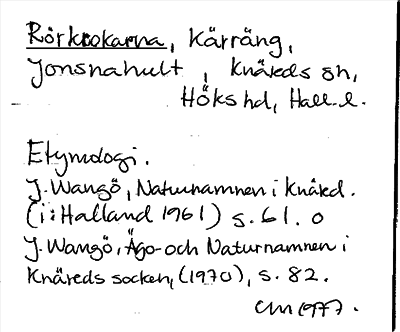 Rörkrokarna, Kärräng,
Jonsnahult, Knäreds sn,
Höks hd, Hall. l.
Etymologi.
J. Wangö, Naturnamnen i Knäred.
(i: Halland 1961) s. 61. o
J. Wangö, Ägo- och Naturnamnen i
Knäreds socken, (1970), s. 82.
CM 1977.